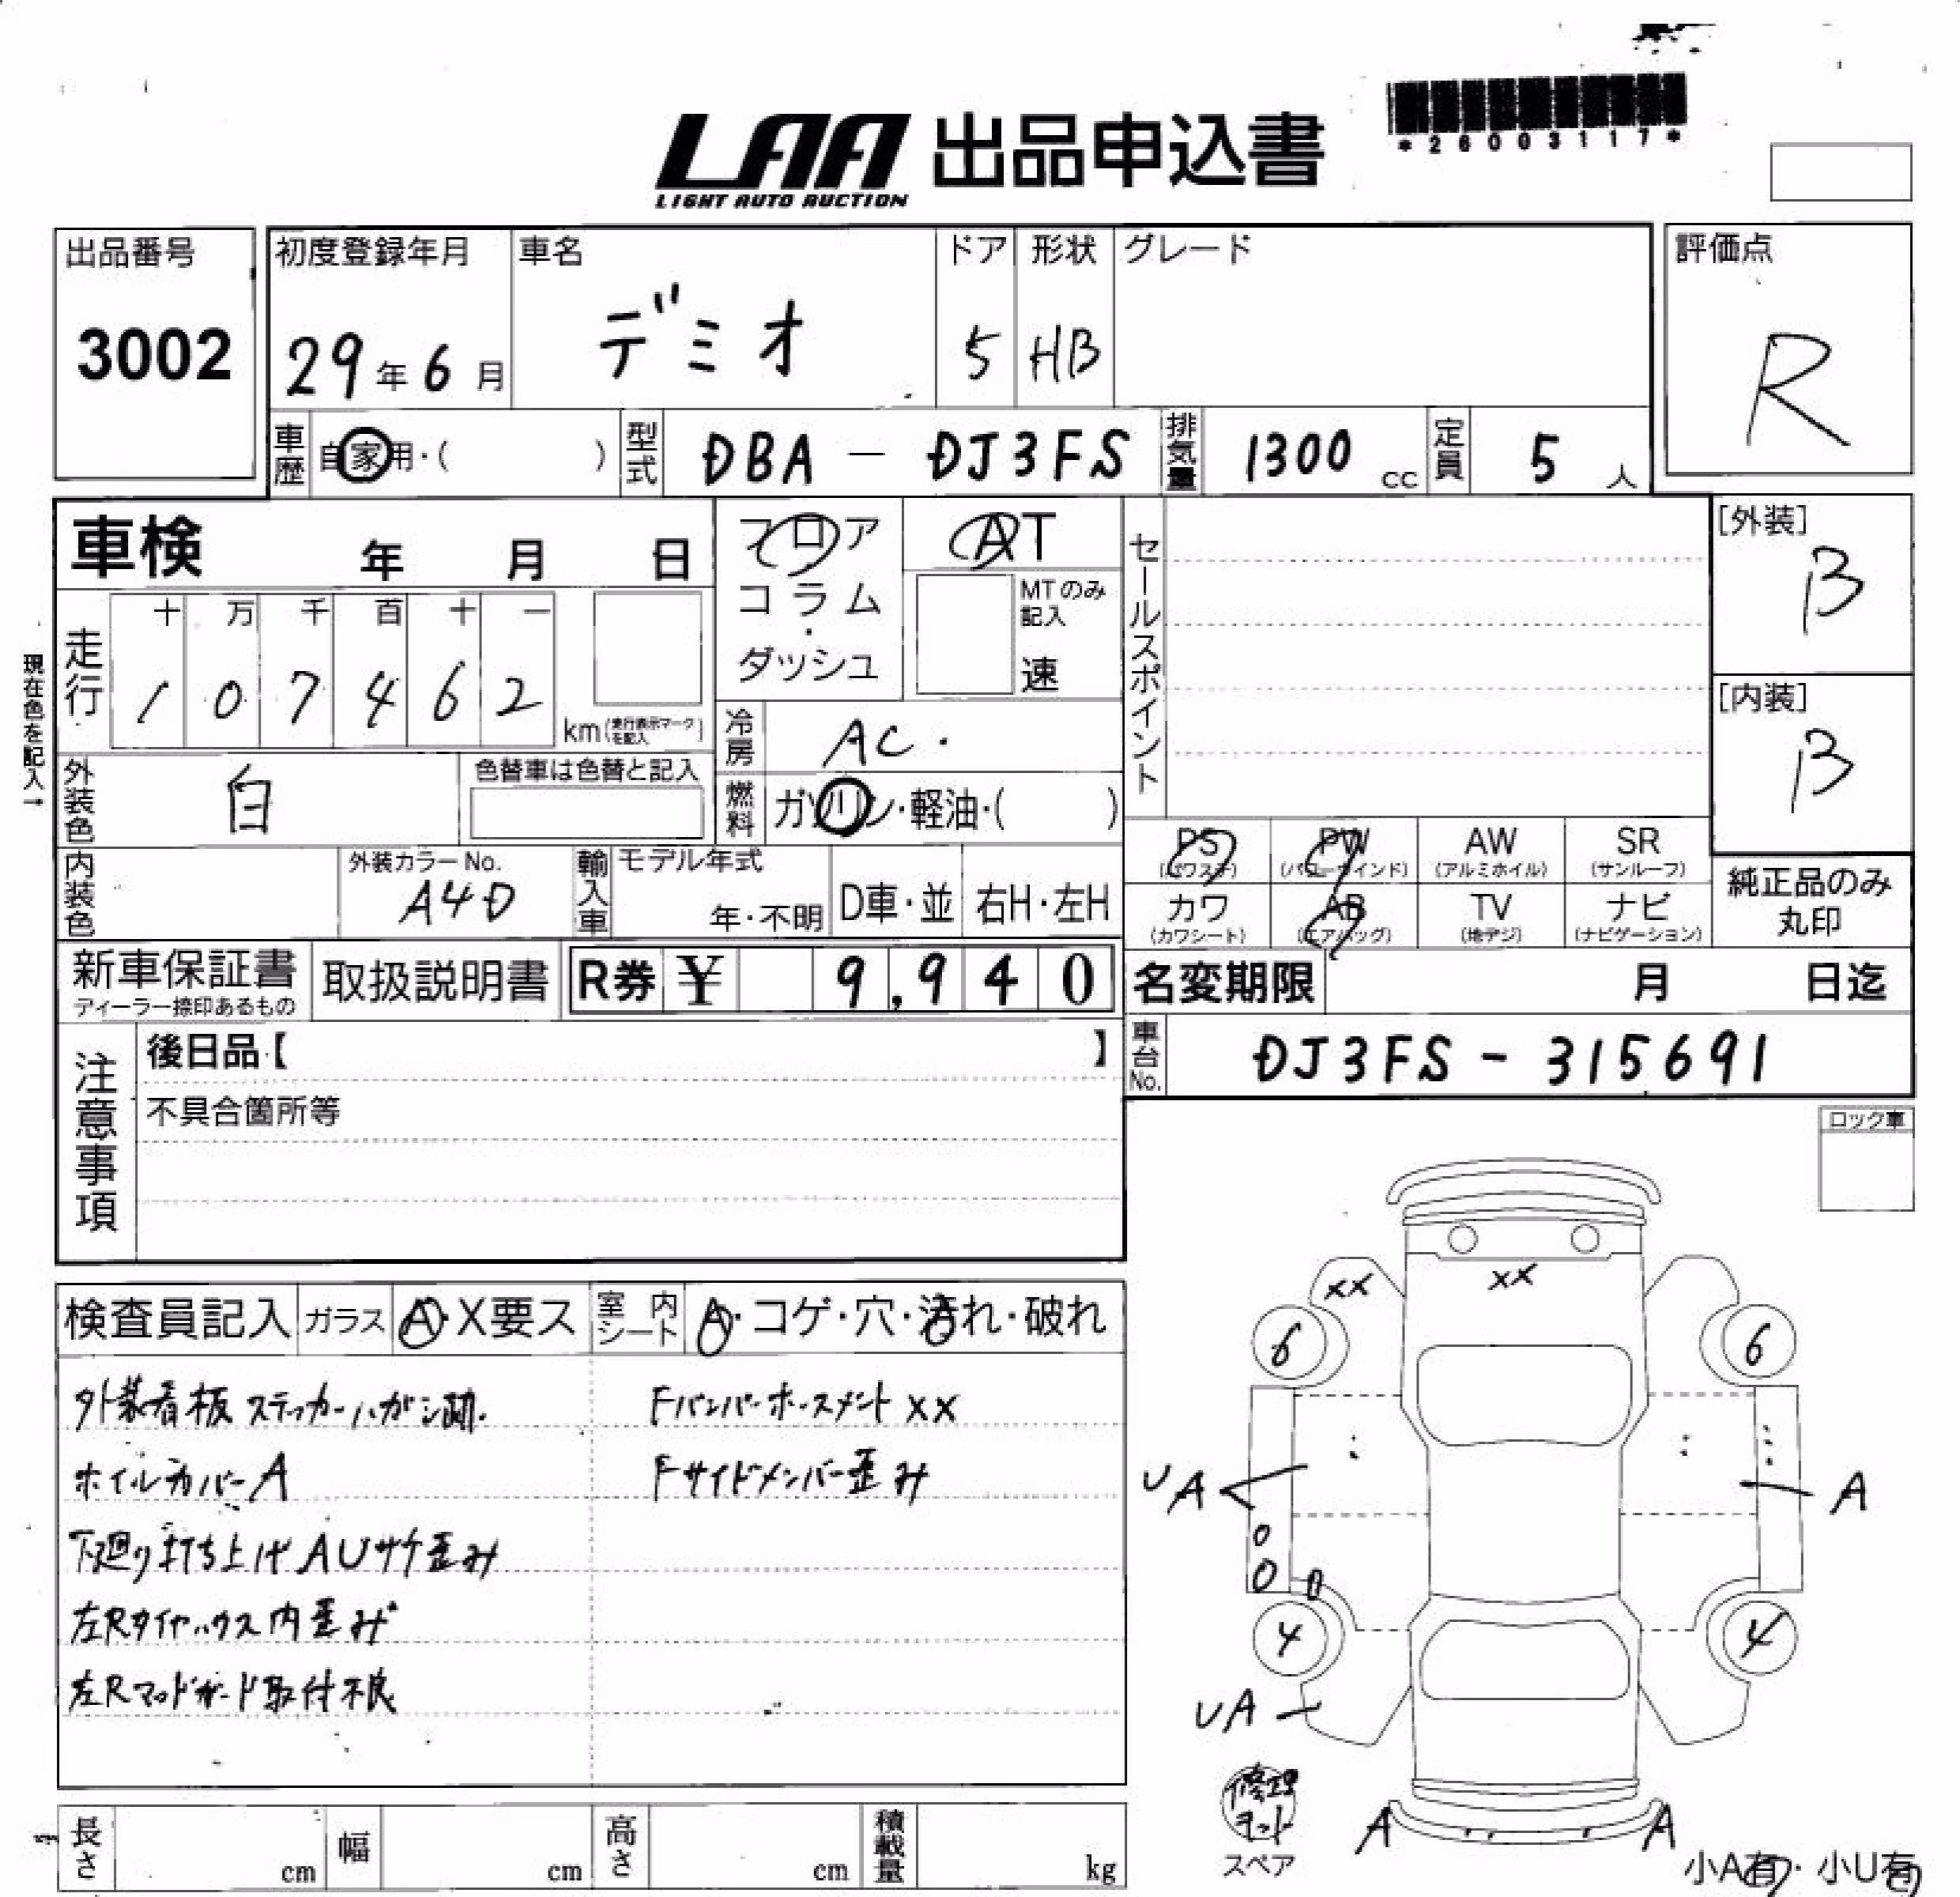 LAA 出品申込書
LIGHT AUTO AUCTION
*26003117*
出品番号
3002
初度登録年月
29年6月
車名
デミオ
ドア
5
形状
HB
グレード
評価点
R
車歴
自家用・( )
型式
DBA - DJ3FS
排気量
1300 cc
定員
5 人
車検 年 月 日
フロア
コラム
・
ダッシュ
AT
MTのみ
記入
速
セールスポイント
[外装]
B
[内装]
B
現在色を記入→
走行
十 万 千 百 十 一
1 0 7 4 6 2
km(走行表示マークを記入)
冷房
AC.
燃料
ガソリン・軽油・( )
外装色
白
色替車は色替と記入
内装色
外装カラーNo.
A4D
輸入車
モデル年式
年・不明
D車・並
右H・左H
PS
(パワステ)
PW
(パワーウインド)
AW
(アルミホイル)
SR
(サンルーフ)
カワ
(カワシート)
AB
(エアバッグ)
TV
(地デジ)
ナビ
(ナビゲーション)
純正品のみ
丸印
新車保証書
ディーラー捺印あるもの
取扱説明書
R券 ¥ 9,940
名変期限 月 日迄
車台No.
DJ3FS - 315691
注意事項
後日品【 】
不具合箇所等
ロック車
検査員記入
ガラス
A・X要ス
室内シート
A・コゲ・穴・汚れ・破れ
外装看板ステッカーハガシ跡.
ホイルカバーA
下廻り打ち上げAUサケ歪み
左Rタイヤハウス内歪み
左Rマッドガード取付不良
Fバンパーホースメントxx
Fサイドメンバー歪み
xx
xx
6
6
UA
A
0
0
0
4
4
UA
修理
キット
スペア
A
A
小A有・小U有
長さ
cm
幅
cm
高さ
cm
積載量
kg